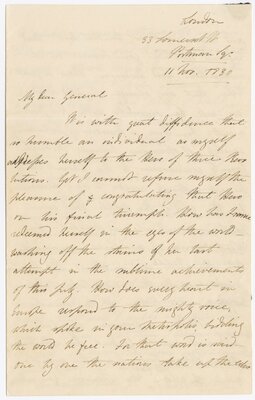 London
33 Somerset St
Portman Sq.
11 Nov. 1830
My dear General
It is with great diffidence that
so humble an individual as myself
addresses herself to the Hero of three Revo
lutions. Yet I cannot refuse myself the
pleasure of congratulating that Hero
on his final triumph. How has France
redeemed herself in the eyes of the world
washing off the stains of her last
attempt in the sublime achievements
of this July. How does every heart in
Europe respond to the mighty voice,
which spoke in your Metropolis, bidding
the world be free. For that word is said
one by one the nations take up the echo